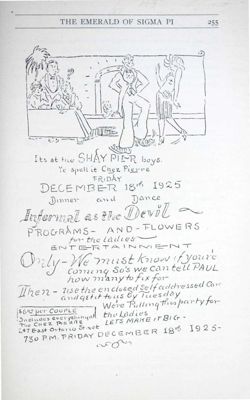 THE EMERALD OF SIGMA PI 255
Its at the SHAY PIER boys.
Ye spell it Chez Pierre
FRIDAY
DECEMBER 18th 1925
Dinner and Dance
Informal as the Devil
PROGRAMS - AND - FLOWERS
for the Ladies
ENTERTAINMENT
Only - We must know if you're
coming so's we can tell PAUL
how many to fix for
Then - use the enclosed self addressed Car
and get it to us by Tuesday
PER COUPLE
Includes everything at
The CHEZ PIERRE
East Ontario Street
We're Pulling this party for
the Ladies
LETS MAKE IT BIG -
7:30 P.M. FRIDAY DECEMBER 18th 1925-